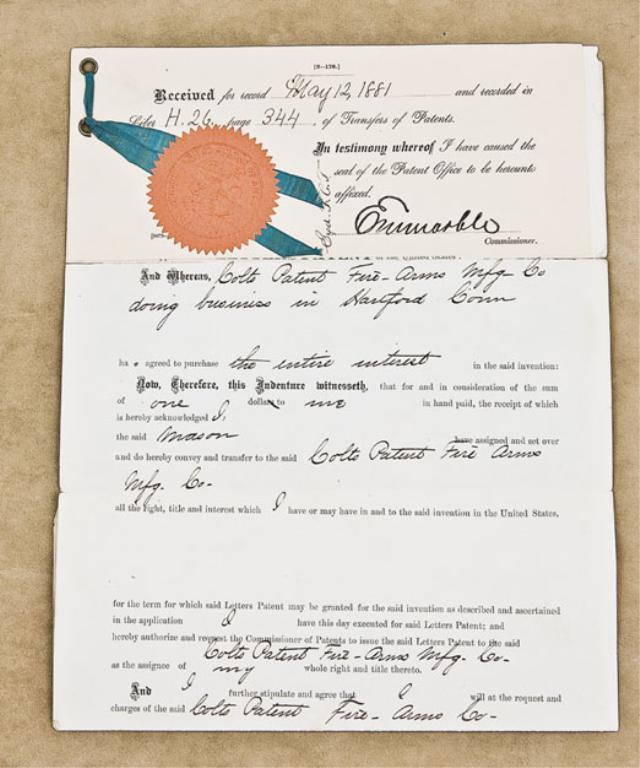 [2-170.]
Received for record May 12, 1881 and recorded in
Liber H. 26, page 344, of Transfers of Patents.
In testimony whereof I have caused the
seal of the Patent Office to be hereunto
affixed.
Commissioner.
of the United States.
And Whereas, Colts Patent Fire-Arms Mfg- Co
doing business in Hartford Conn
ha agreed to purchase the entire interest in the said invention:
Now, Therefore, this Indenture witnesseth, that for and in consideration of the sum
of one dollars to me in hand paid, the receipt of which
is hereby acknowledged I,
the said Mason have assigned and set over
and do hereby convey and transfer to the said Colts Patent Fire Arms
Mfg. Co-
all the right, title and interest which I have or may have in and to the said invention in the United States,
for the term for which said Letters Patent may be granted for the said invention as described and ascertained
in the application I have this day executed for said Letters Patent; and
hereby authorize and request the Commissioner of Patents to issue the said Letters Patent to the said
Colts Patent Fire-Arms Mfg. Co-
as the assignee of my whole right and title thereto.
And I further stipulate and agree that I will at the request and
charges of the said Colts Patent Fire-Arms Co-